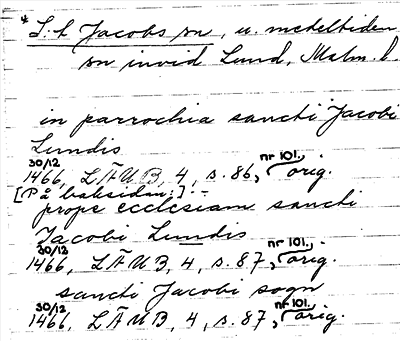 * S:t Jacobs sn, u. medeltiden
sn invid Lund, Malm. l.
in parrochia sancti Jacobi
Lundis
30/12 1466, LÄUB, 4, s. 86, nr 101, orig.
[På baksidan:] -
prope ecclesiam sancti
Jacobi Lundis
30/12 1466, LÄUB, 4, s. 87, nr 101, orig.
sancti Jacobi sogn
30/12 1466, LÄUB, 4, s. 87, nr 101, orig.